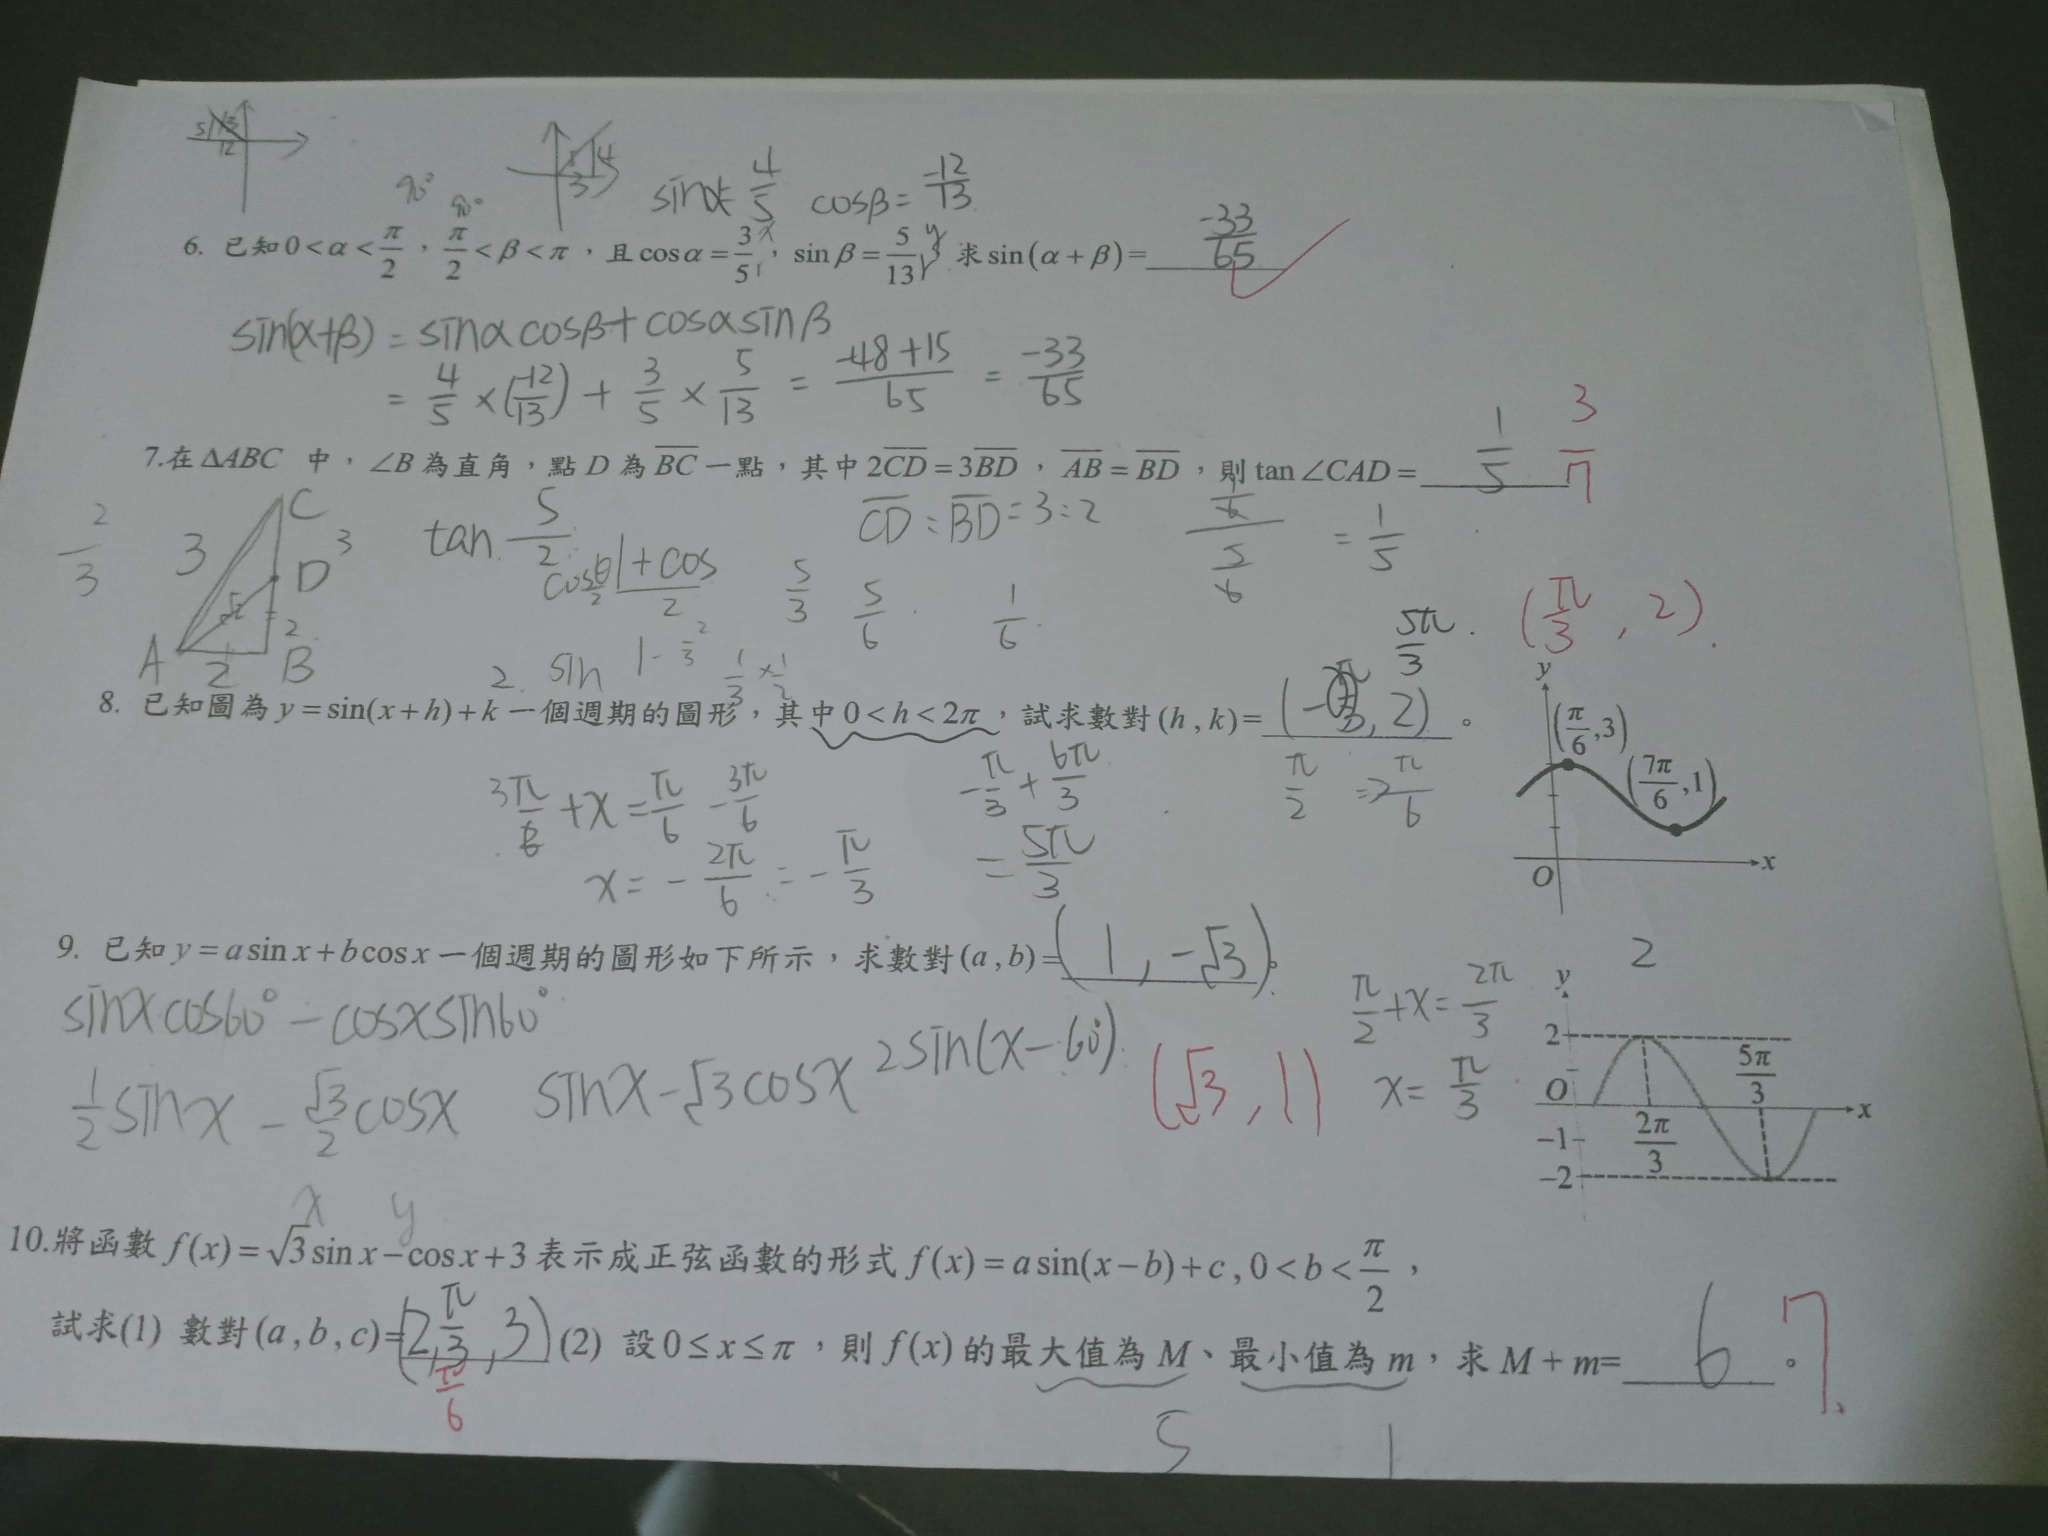 5 13
12
5 4
3
90° 90°
sinα= 4/5 cosβ= -12/13
6. 已知 0<α<π/2，π/2<β<π，且 cosα=3/5，sinβ=5/13，求 sin(α+β)= -33/65
sin(α+β) = sinα cosβ+cosα sinβ
= 4/5 ×(-12/13) + 3/5 × 5/13 = (-48+15)/65 = -33/65
7.在 ΔABC 中，∠B 為直角，點 D 為 BC 一點，其中 2CD=3BD，AB=BD，則 tan∠CAD= 1/5 3/7
2/3
C
3 D 3
2
A 2 B
tan 5/2
CD : BD = 3 : 2
1/6 / 5/6 = 1/5
cos θ/2 1+cos/2
5/3 5/6 1/6
2. sin 1-2/3 1/3 × 1/2
5π/3 . (π/3 , 2).
8. 已知圖為 y=sin(x+h)+k 一個週期的圖形，其中 0<h<2π，試求數對(h,k)= (-π/3, 2)。
y
(π/6,3)
(7π/6,1)
O x
3π/6 +x = π/6 - 3π/6
x = -2π/6 = -π/3
-π/3 + 6π/3
= 5π/3
π/2 => π/6
9. 已知 y=asinx+bcosx 一個週期的圖形如下所示，求數對(a,b)=(1, -√3)。
sinxcos60° - cosxsin60°
1/2 sinx - √3/2 cosx
sinx-√3cosx
2sin(x-60°)
(√3, 1)
π/2 +x= 2π/3
x= π/3
2
y
2
O x
-1
-2
2π/3
5π/3
x y
10.將函數 f(x)=√3sinx-cosx+3 表示成正弦函數的形式 f(x)=asin(x-b)+c,0<b<π/2，
試求(1) 數對(a,b,c)=(2, π/3, 3) (2) 設 0≤x≤π，則 f(x) 的最大值為 M、最小值為 m，求 M+m= 6 。 7.
π/6
5 1